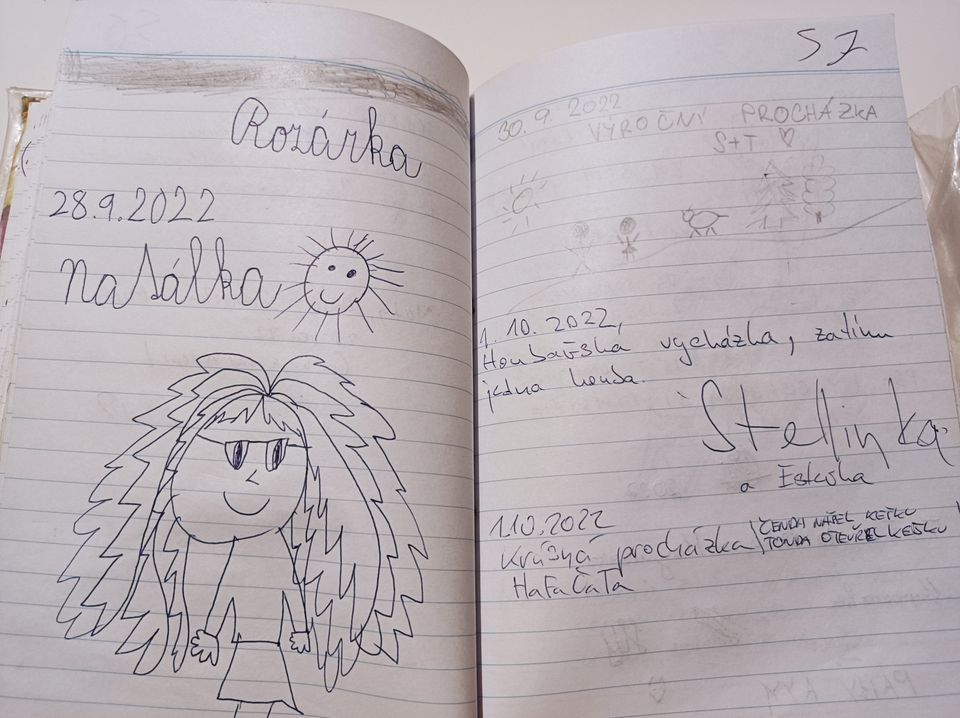 Rozárka
28.9.2022
Natálka
57
30.9.2022
VÝROČNÍ PROCHÁZKA
S+T ♡
1.10.2022,
Houbařská vycházka, zatím
jedna houba.
Stellinka
a
1.10.2022
Krásná procházka ČENDA NAŠEL KEŠKU
TONDA OTEVŘEL KEŠKU
HaFaČaTa